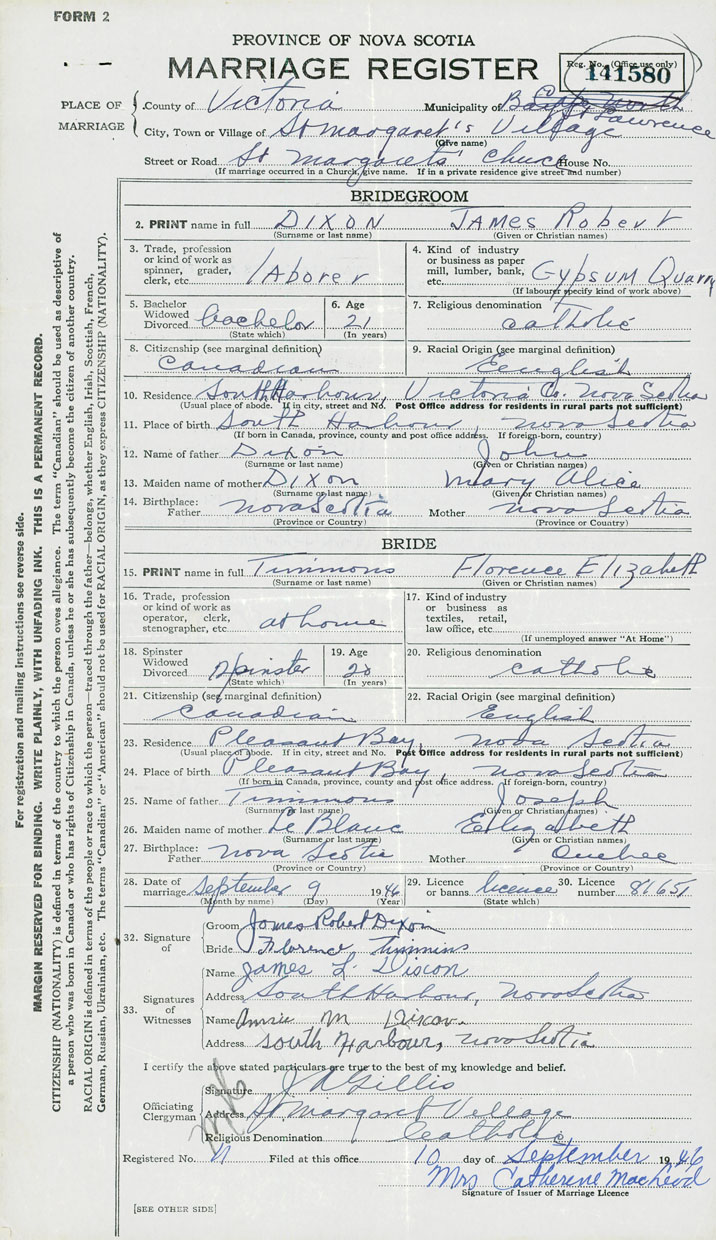 FORM 2
PROVINCE OF NOVA SCOTIA
MARRIAGE REGISTER
Reg. No. (Office use only)
141580
PLACE OF MARRIAGE
County of Victoria Municipality of Bay St Lawrence
City, Town or Village of St margaret's Village
(Give name)
Street or Road St Margarets' Church House No.
(If marriage occurred in a Church, give name. If in a private residence give street and number)
BRIDEGROOM
2. PRINT name in full DIXON JAMES RobERT
(Surname or last name) (Given or Christian names)
3. Trade, profession or kind of work as spinner, grader, clerk, etc. lAborer
4. Kind of industry or business as paper mill, lumber, bank, etc. GypsUM QuArry
(If labourer specify kind of work above)
5. Bachelor Widowed Divorced bachelor
(State which)
6. Age 21
(In years)
7. Religious denomination catholic
8. Citizenship (see marginal definition) Canadian
9. Racial Origin (see marginal definition) Eenglish
10. Residence South Harbour, Victoria Co. nova Scotia
(Usual place of abode. If in city, street and No. Post Office address for residents in rural parts not sufficient)
11. Place of birth South Harbour, nova Scotia
(If born in Canada, province, county and post office address. If foreign-born, country)
12. Name of father Dixon John
(Surname or last name) (Given or Christian names)
13. Maiden name of mother DIXON Mary Alice
(Surname or last name) (Given or Christian names)
14. Birthplace: Father nova Scotia Mother nova Scotia
(Province or Country) (Province or Country)
BRIDE
15. PRINT name in full Timmons Florence Elizabeth
(Surname or last name) (Given or Christian names)
16. Trade, profession or kind of work as operator, clerk, stenographer, etc at home
17. Kind of industry or business as textiles, retail, law office, etc.
(If unemployed answer "At Home")
18. Spinster Widowed Divorced Spinster
(State which)
19. Age 20
(In years)
20. Religious denomination catholic
21. Citizenship (see marginal definition) Canadian
22. Racial Origin (see marginal definition) Eenglish
23. Residence Pleasant Bay, nova Scotia
(Usual place of abode. If in city, street and No. Post Office address for residents in rural parts not sufficient)
24. Place of birth Pleasant Bay, nova Scotia
(If born in Canada, province, county and post office address. If foreign-born, country)
25. Name of father Timmons Joseph
(Surname or last name) (Given or Christian names)
26. Maiden name of mother Le Blanc Elizabeth
(Surname or last name) (Given or Christian names)
27. Birthplace: Father nova Scotia Mother Quebec
(Province or Country) (Province or Country)
28. Date of marriage September 9 1946
(Month by name) (Day) (Year)
29. Licence or banns licence
(State which)
30. Licence number 81651
32. Signature of
Groom James Robert Dixon
Bride Florence Timmins
33. Signatures of Witnesses
Name James L. Dixon
Address South Harbour, Nova Scotia
Name Annie M Dixon
Address South Harbour, nova Scotia
I certify the above stated particulars are true to the best of my knowledge and belief.
Officiating Clergyman
Signature J A Gillis
Address St Margaret Village
Religious Denomination Catholic
Registered No. 11 Filed at this office 10 day of September 1946
Mrs Catherine MacLeod
Signature of Issuer of Marriage Licence
[SEE OTHER SIDE]
For registration and mailing instructions see reverse side.
MARGIN RESERVED FOR BINDING. WRITE PLAINLY, WITH UNFADING INK. THIS IS A PERMANENT RECORD.
CITIZENSHIP (NATIONALITY) is defined in terms of the country to which the person owes allegiance. The term "Canadian" should be used as descriptive of
a person who was born in Canada or who has rights of Citizenship in Canada, unless he or she has subsequently become the citizen of another country.
RACIAL ORIGIN is defined in terms of the people or race to which the person—traced through the father—belongs, whether English, Irish, Scottish, French,
German, Russian, Ukrainian, etc. The terms "Canadian" or "American" should not be used for RACIAL ORIGIN, as they express CITIZENSHIP (NATIONALITY).